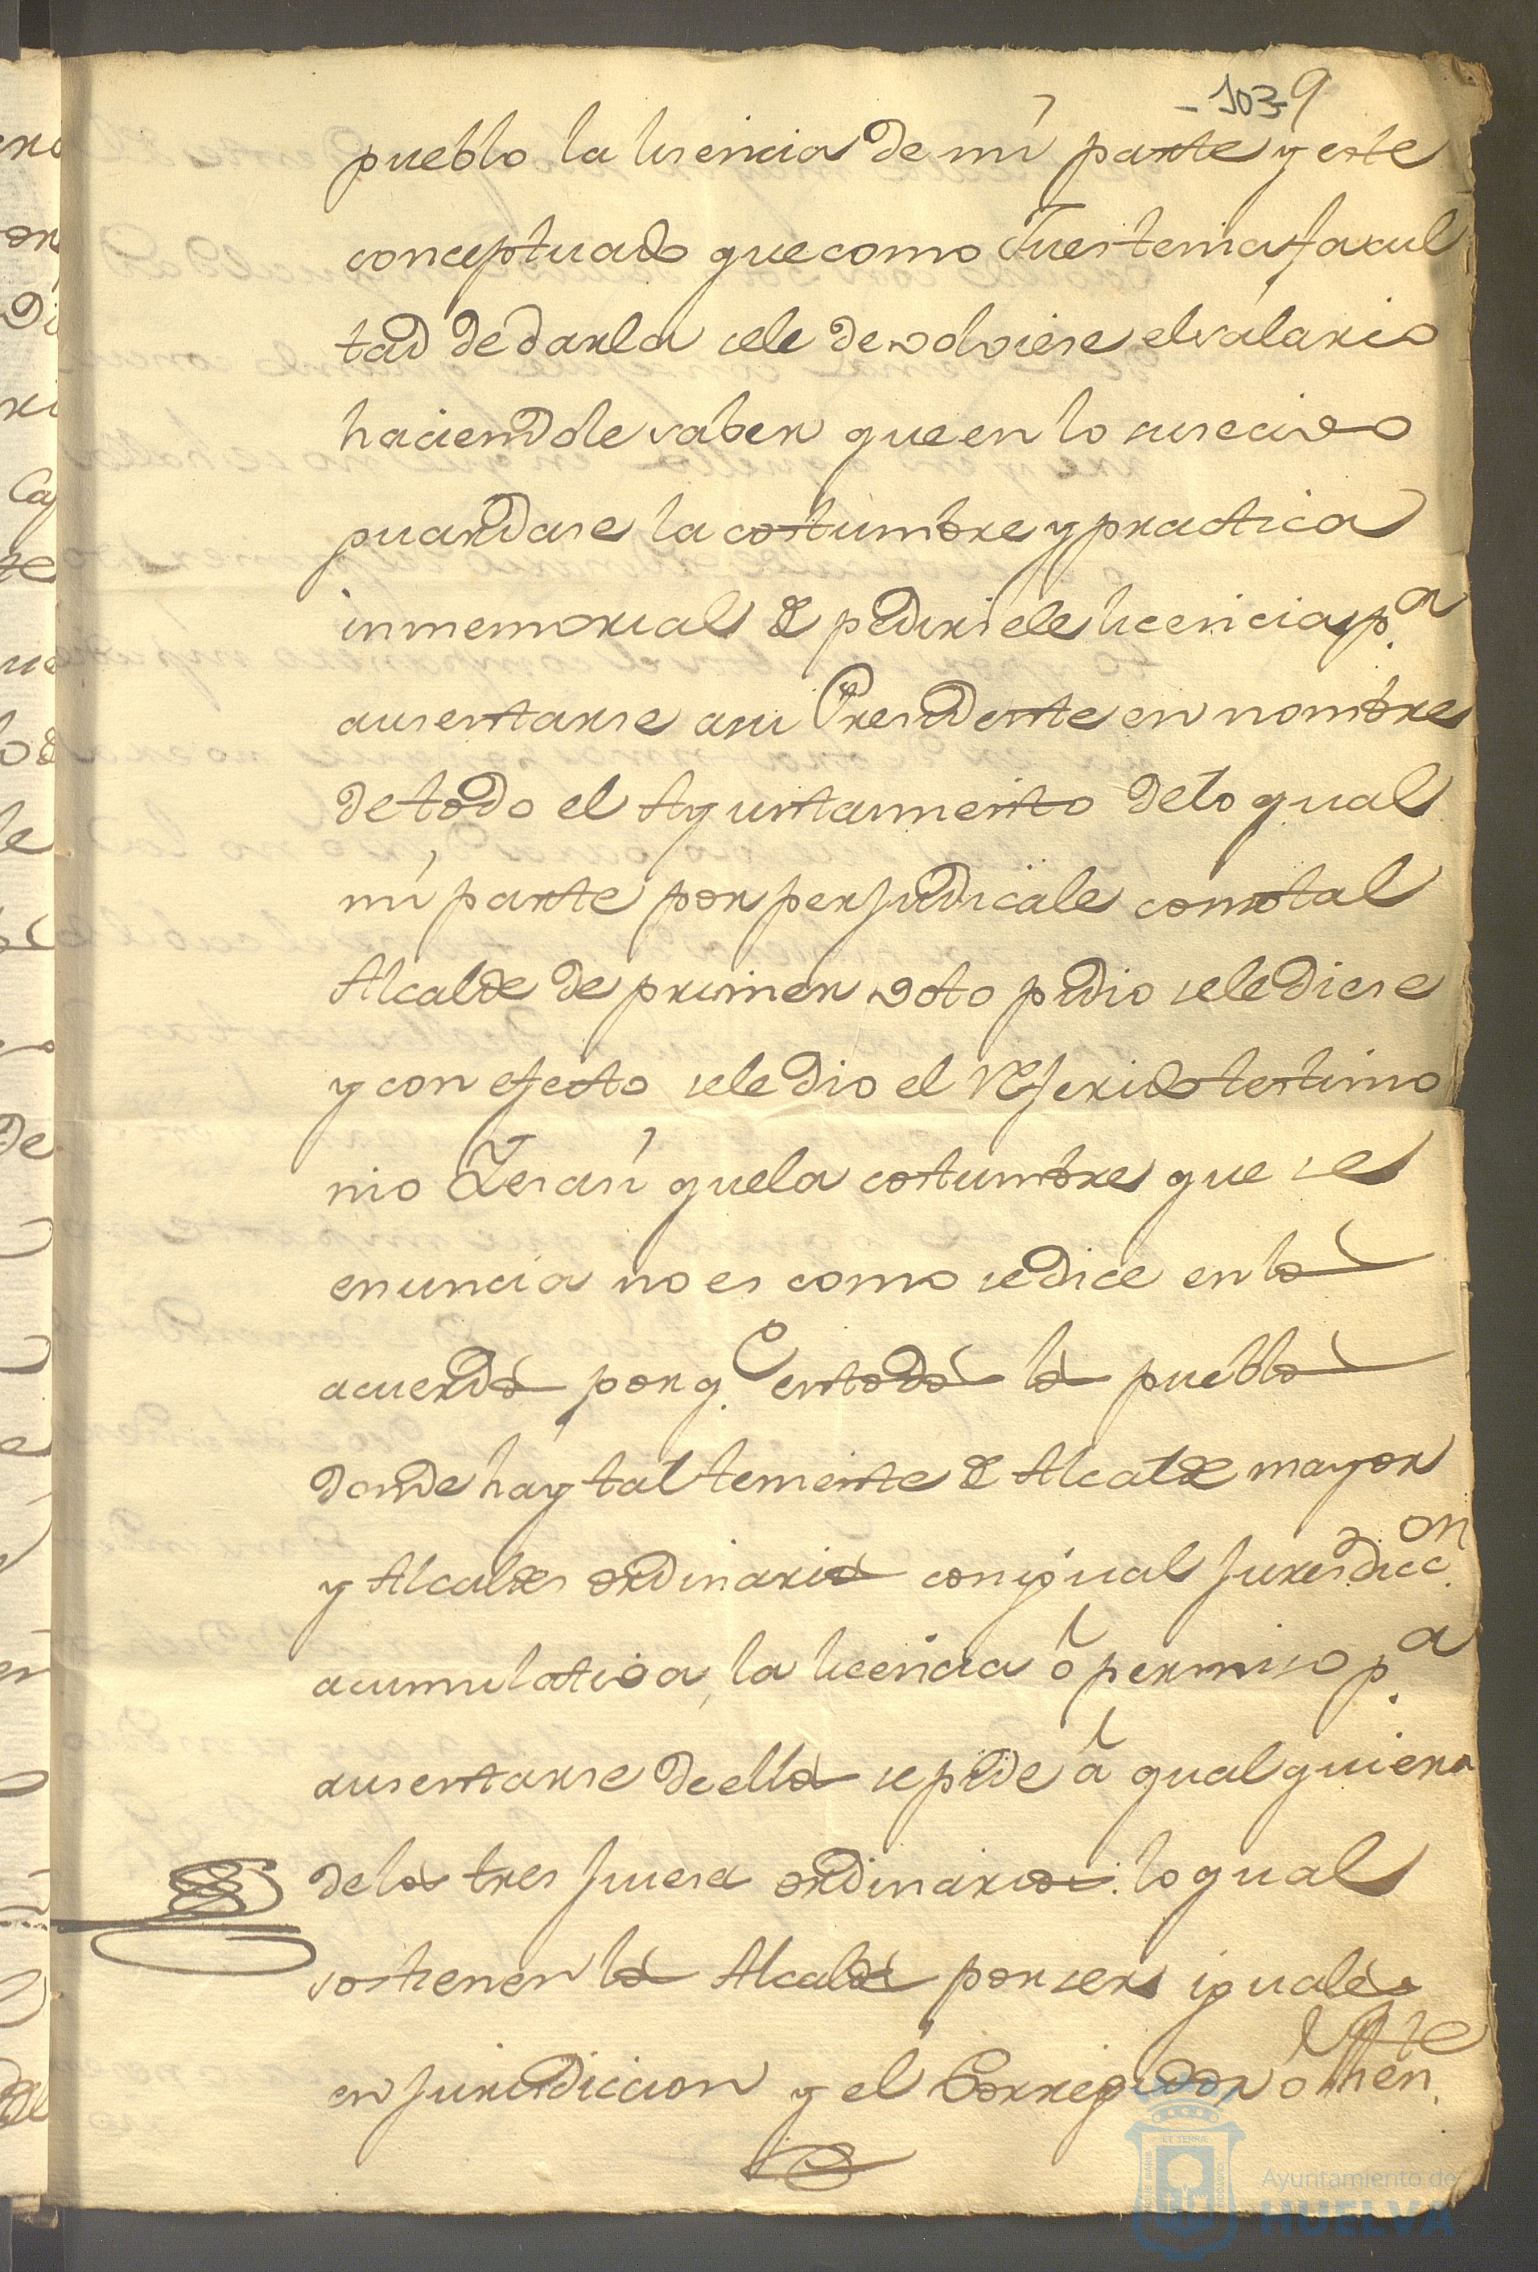 -103- 9
pueblo la lisencia de mi parte y este
conceptuado que como Jues tenia facul
tad de darla sele devolviese el salario
haciendole saber que en lo susecivo
guardase la costumbre y practica
inmemorial de pedirsele licencia p.a
ausentarse a su Presidente en nombre
de todo el Ayuntamiento delo qual
mi parte por perjudicale como tal
Alcalde de primer voto pidio sele diese
y con efecto sele dio el referido testimo
nio Yes asi que la costumbre que se
enuncia no es como se dice en los
acuerdos porq.e en todos los pueblos
donde hay tal teniente de Alcalde mayor
y Alcaldes ordinarios con igual Jurisdicc.on
acumulativa, la licencia ó permiso p.a
ausentarse de ellos se pide á qualquiera
delos tres Jueses ordinarios: lo qual
sostienen los Alcaldes por ser iguales
en jurisdiccion y el Corregidor ó Then.te
Ayuntamiento de
HUELVA